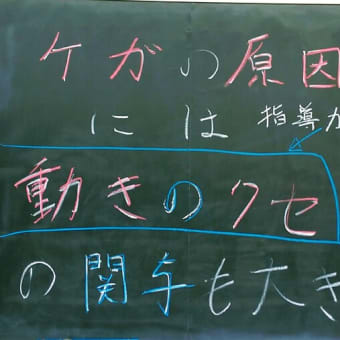 ケガの原因
には 指導か
動きのクセ
の関与も大き